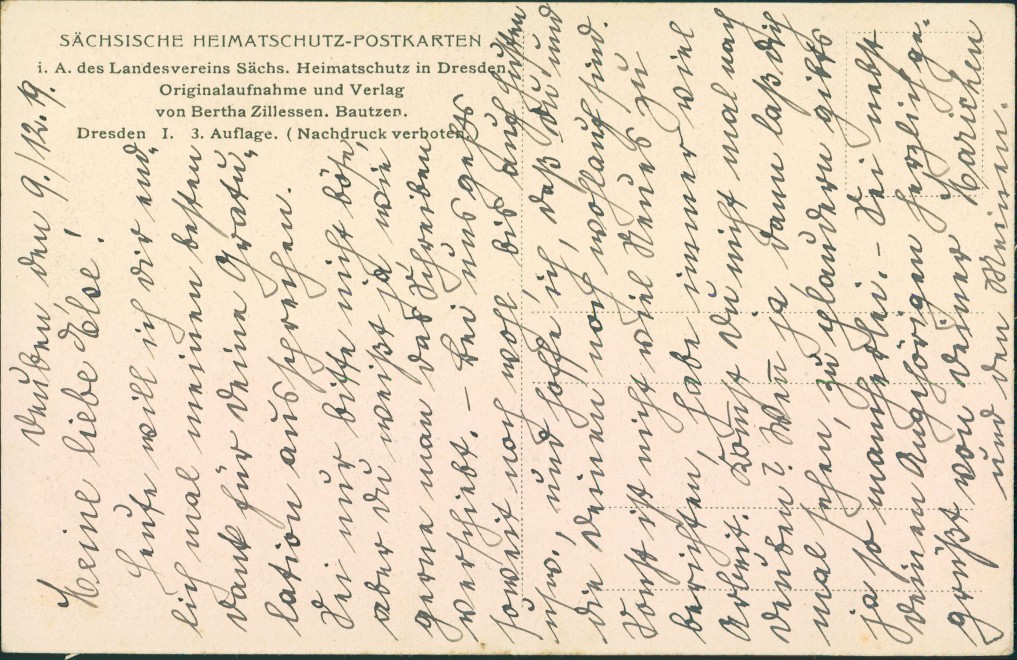 SÄCHSISCHE HEIMATSCHUTZ-POSTKARTEN
i. A. des Landesvereins Sächs. Heimatschutz in Dresden.
Originalaufnahme und Verlag
von Bertha Zillessen. Bautzen.
Dresden I. 3. Auflage. (Nachdruck verboten.)
Deuben den 9./12. 19.
Meine liebe Else!
Heute will ich dir end„
lich mal meinen besten
Dank für deine Gratu„
lation aussprechen.
Sei nur bitte nicht böse,
aber du weißt ja wie
gerne man das Schreiben
verschiebt. – Bei uns gehts
soweit noch wohl bis auf
und hoffe ich, daß du und
die deinen noch wohlauf sind.
Sonst ist nicht viel Neues zu
berichten, habe immer viel
Arbeit. Kommst du nicht mal nach
Deuben? Wenn ja dann laß dich
mal sehen, zu plaudern gibts
ja so mancherlei. – Sei nebst
deinen Angehörigen herzlich ge-
grüßt von deiner Mariechen
und den Meinen.